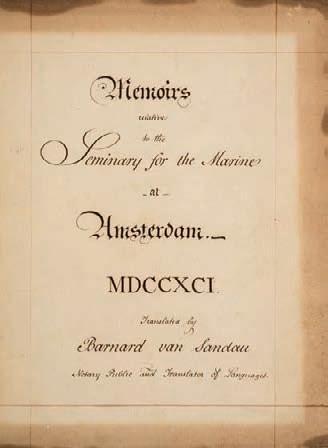 Memoirs
relative
to the
Seminary for the Marine
- at -
Amsterdam. -
MDCCXCI.
Translated by
Barnard van Sandau
Notary Public and Translator of Languages.